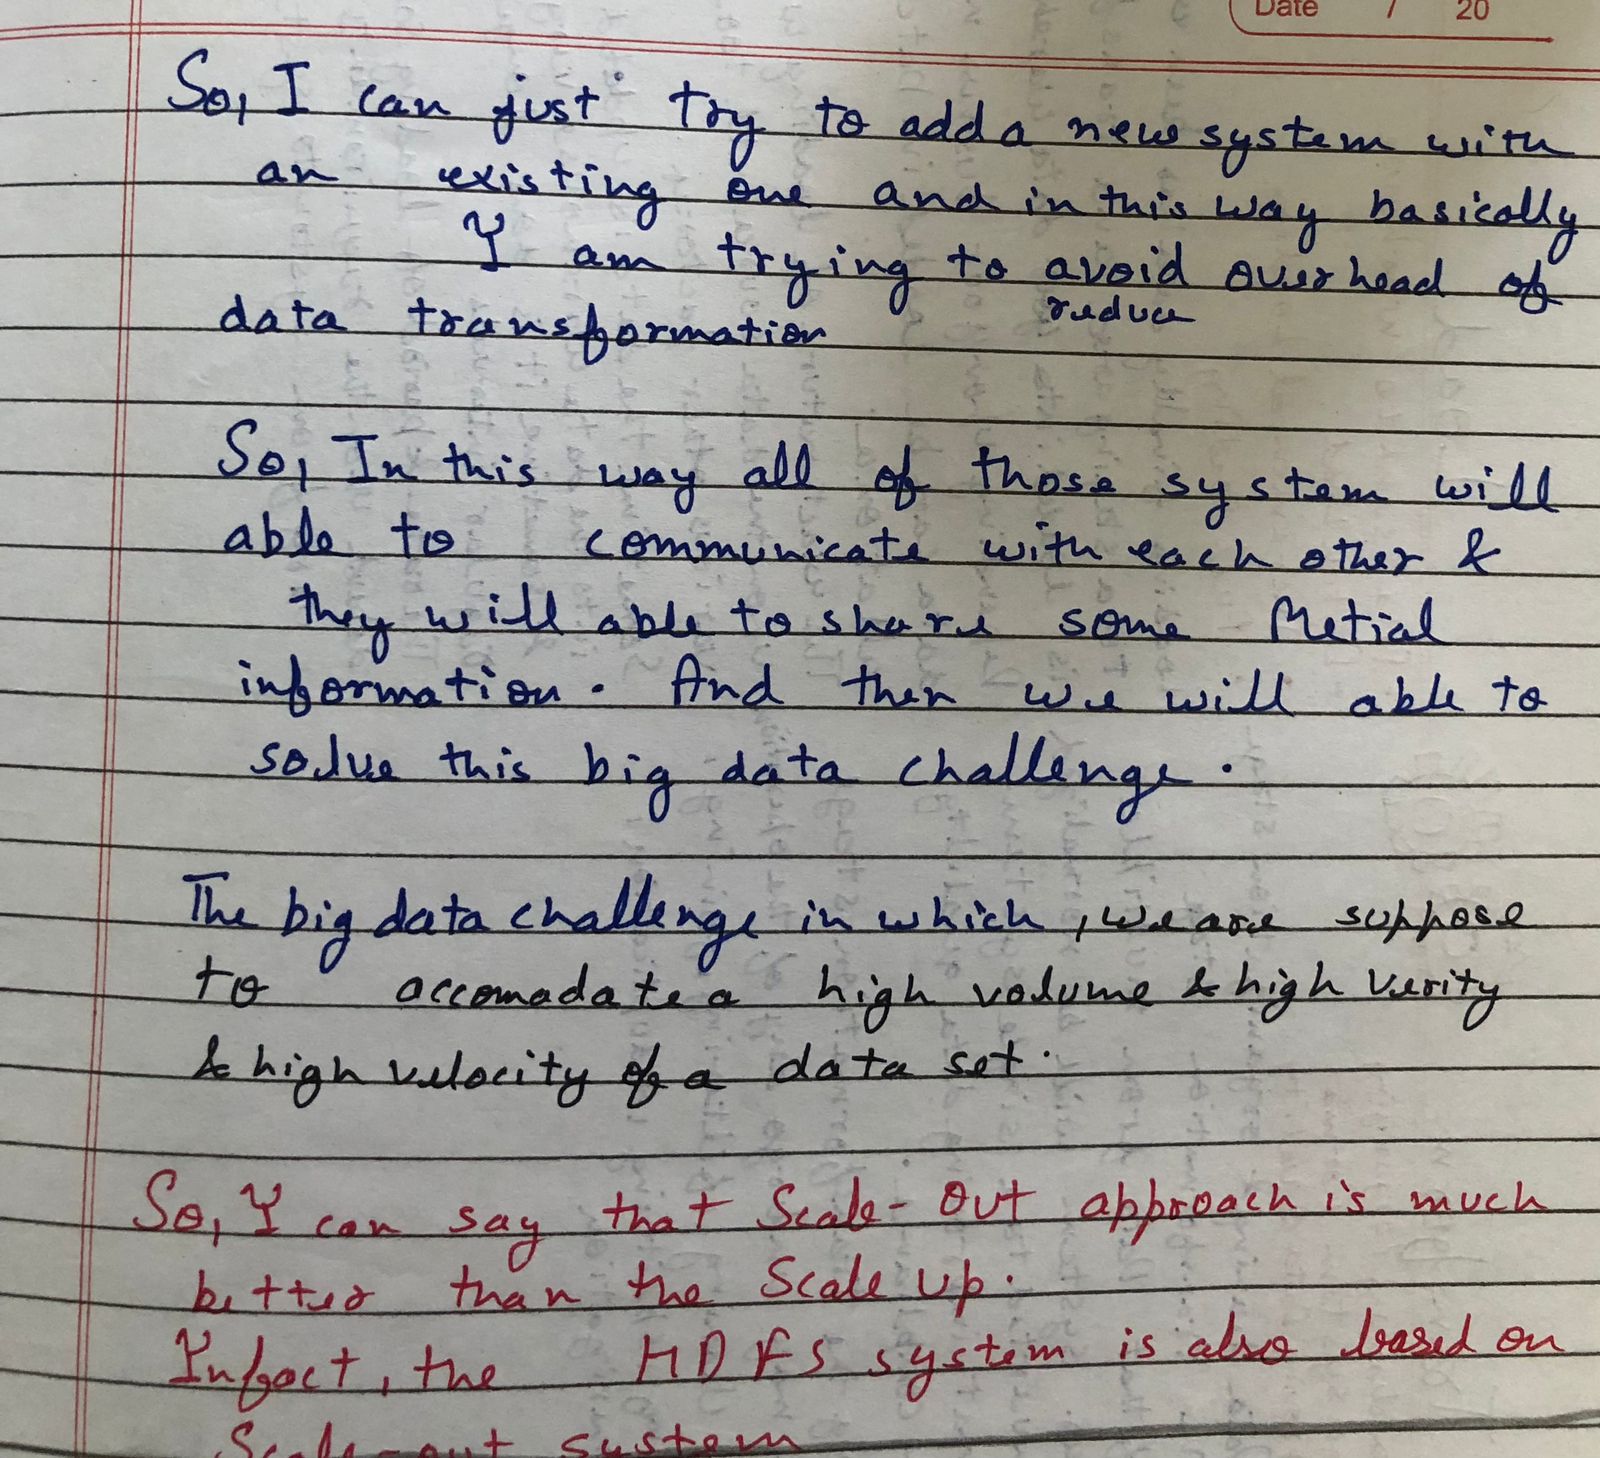 Date / 20
So, I can just try to add a new system with
an existing one and in this way basically
I am trying to avoid overhead of
reduce
data transformation
So, In this way all of those system will
able to communicate with each other &
they will able to share some Metial
information. And then we will able to
solve this big data challenge.
The big data challenge in which, we are suppose
to accomadate a high volume & high verity
& high velocity of a data set.
So, I can say that Scale-Out approach is much
better than the Scale up.
Infact, the HDFS system is also based on
Scale-out system